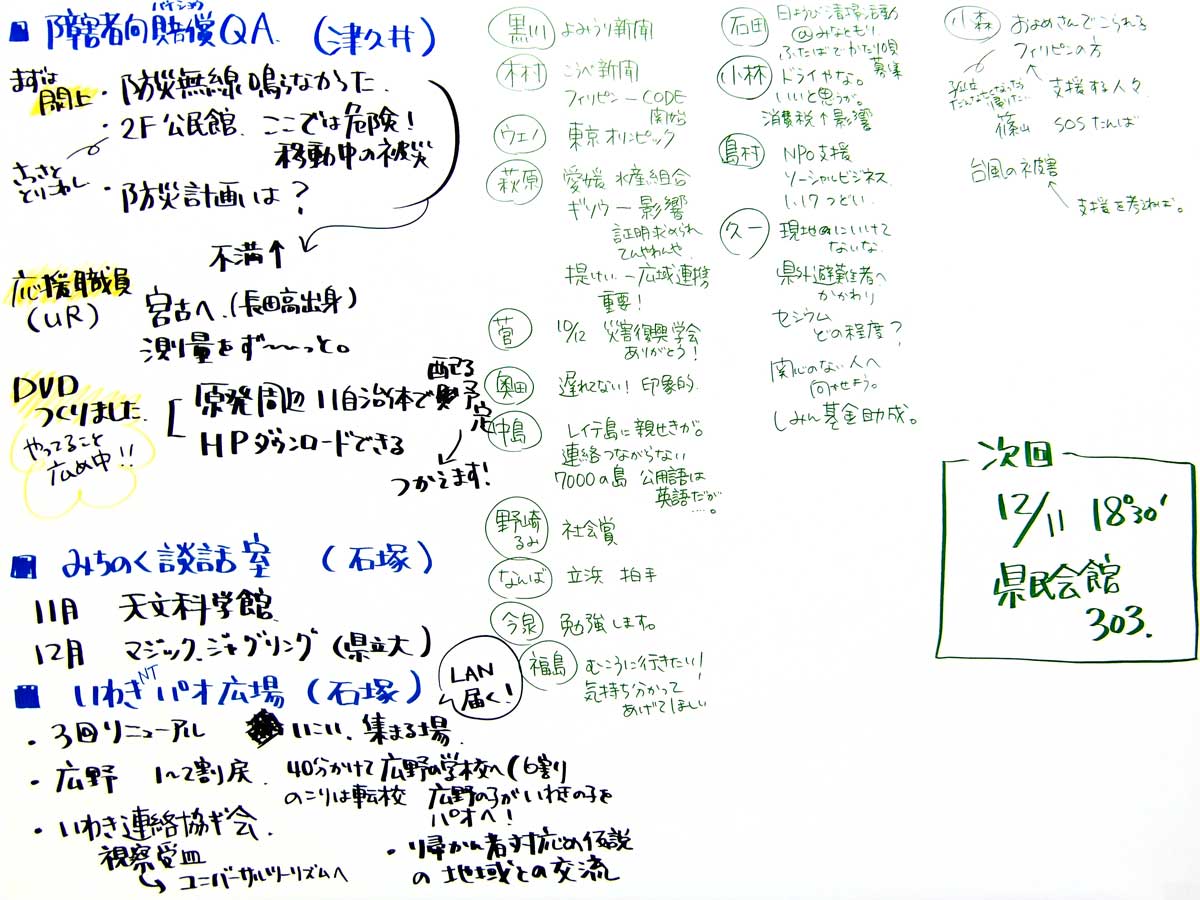 ■ 障害者向賠償QA (津久井)
バイショウ
まずは
閖上
・防災無線鳴らなかった
・2F公民館、ここでは危険!
移動中の被災
さっさと
とりこわし
・防災計画は?
不満↑
応援職員
(UR)
宮古へ、(長田高出身)
測量をず〜〜っと。
DVD
つくりました
やってること
広め中!!
原発周辺11自治体で
配る
予定
HPダウンロードできる
つかえます!
■ みちのく談話室 (石塚)
11月 天文科学館
12月 マジック、ジャグリング (県立大)
■ いわきNTパオ広場 (石塚)
LAN
届く!
・3回リニューアル いこい、集まる場
・広野 1〜2割戻 40分かけて広野の学校へ(6割
のこりは転校 広野の子がいわきの子を
パオへ!
・いわき連絡協ギ会
視察受皿
ユニバーサルツーリズムへ
・帰かん者対応め仮設
の地域との交流
黒川 よみうり新聞
木村 こうべ新聞
フィリピン—CODE
開始
ウエノ 東京オリンピック
萩原 愛媛 水産組合
ギソウ—影響
証明求められ
てんやわんや
提けい—広域連携
重要!
菅 10/12 災害復興学会
ありがとう!
奥田 遅れてない!印象的
中島 レイテ島に親せきが。
連絡つながらない
7000の島 公用語は
英語だが
…。
野崎
るみ
社会賞
なんば 立浜 拍手
今泉 勉強します。
福島 むこうに行きたい!
気持ち分かって
あげてほしい
石田 日ようび清掃活動
@みなともり
ふたばでかたり頃
募集
小林 ドライやな。
いいと思うが。
消費税↑影響
島村 NPO支援
ソーシャルビジネス
1.17つどい
久一 現地にいけて
ないな
県外避難者へ
かかわり
セシウム
どの程度?
関心のない人へ
向かせよう。
しみん基金助成。
小森 およめさんでこられる
フィリピンの方
支援する人々
篠山 SOSたんば
台風の被害
支援を考えれば。
次回
12/11 18:30'
県民会館
303.